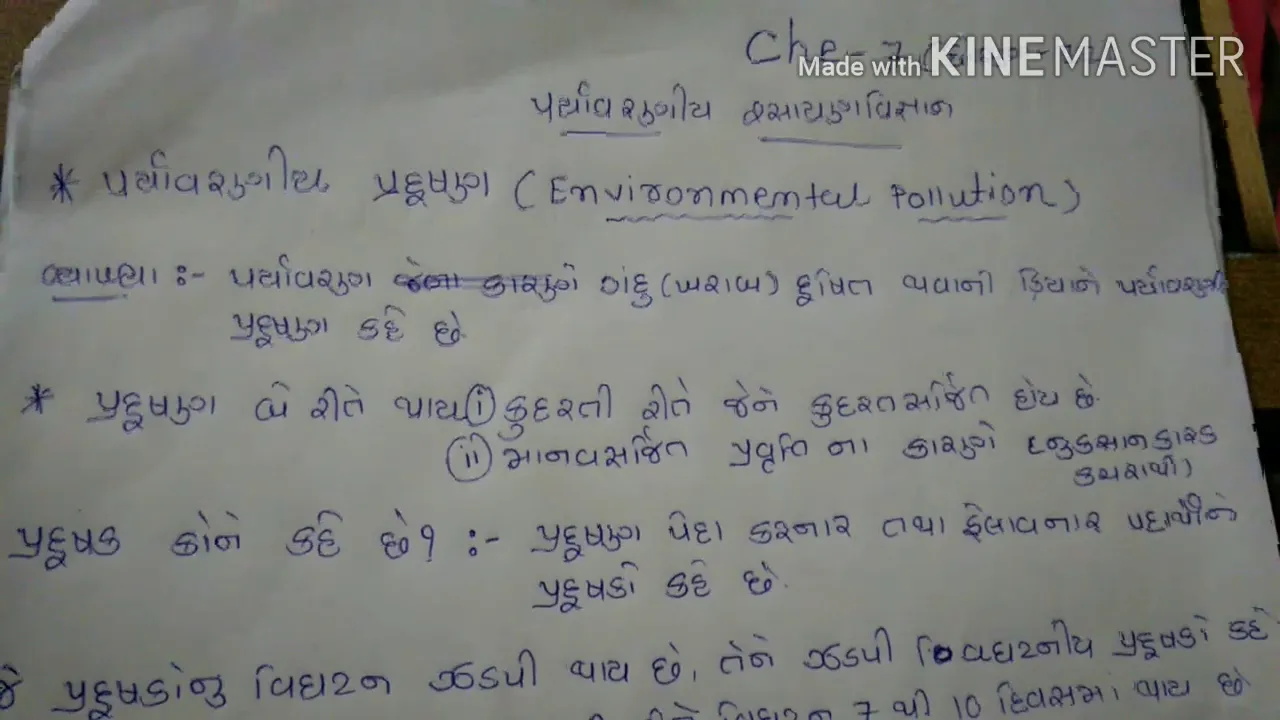 Che-7
Made with KINEMASTER
પર્યાવરણીય રસાયણવિજ્ઞાન
* પર્યાવરણીય પ્રદૂષણ (Environmental Pollution)
વ્યાખ્યા :- પર્યાવરણ ગંદુ (ખરાબ) દૂષિત થવાની ક્રિયાને પર્યાવરણીય
પ્રદૂષણ કહે છે.
* પ્રદૂષણ બે રીતે થાય (i) કુદરતી રીતે જેને કુદરતસર્જિત હોય છે.
(ii) માનવસર્જિત પ્રવૃતિ ના કારણે (નુકસાનકારક
કચરાથી)
પ્રદૂષક કોને કહે છે? :- પ્રદૂષણ પેદા કરનાર તથા ફેલાવનાર પદાર્થોને
પ્રદૂષકો કહે છે.
જે પ્રદૂષકોનુ વિઘટન ઝડપી થાય છે, તેને ઝડપી વિઘટનીય પ્રદૂષકો કહે
વિઘટન 7 થી 10 દિવસમાં થાય છે